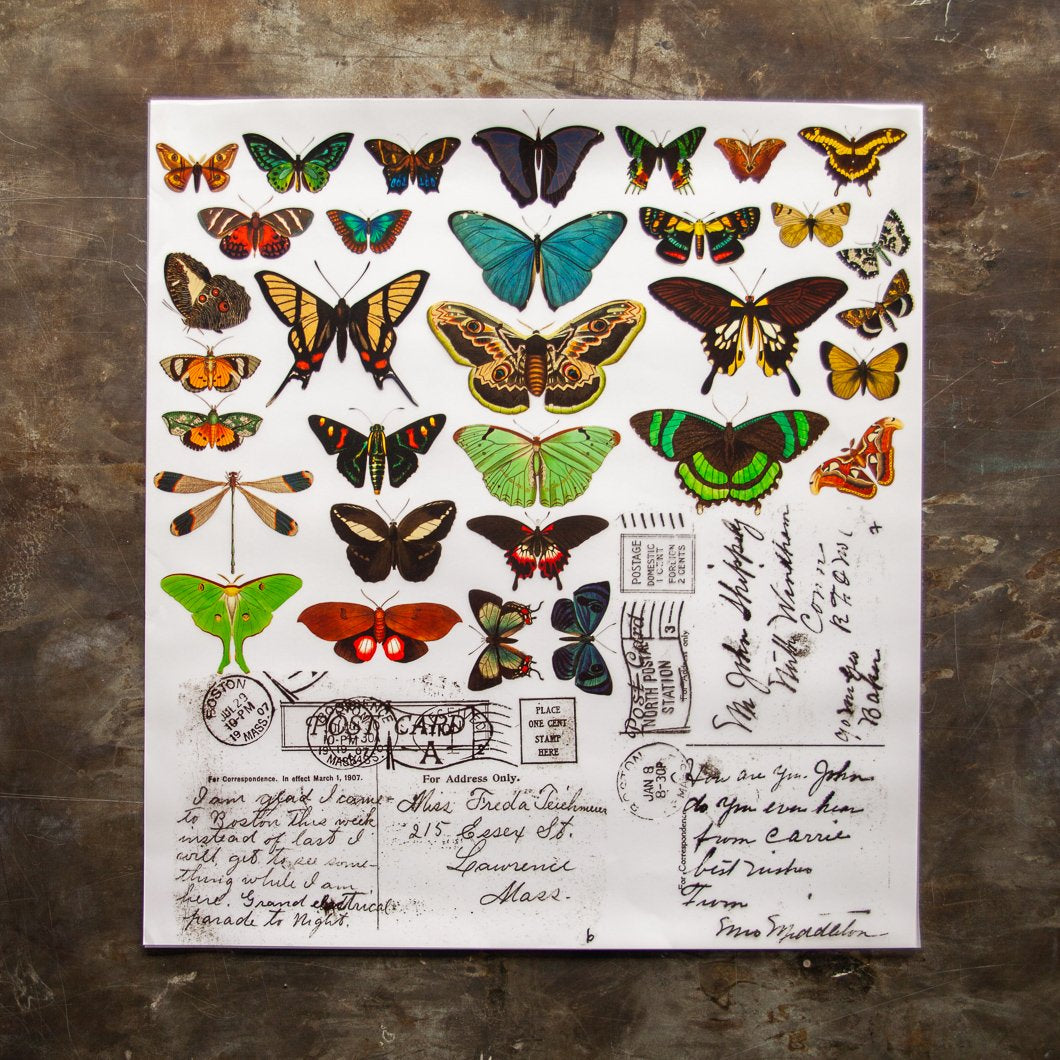 POSTAGE
DOMESTIC
1 CENT
FOREIGN
2 CENTS
Post Card
NORTH POSTAL
STATION
3
For Address only
Mr John Shippey
North Windham
Conn
BOSTON
JUL 29
10-PM
19 07
MASS.
POST CARD
A
2
PLACE
ONE CENT
STAMP
HERE
For Correspondence. In effect March 1, 1907.
For Address Only.
I am glad I came
to Boston this week
instead of last I
will get to see some-
thing while I am
here. Grand electrical
parade to Night.
Miss Freda Teichmeier
215 Essex St.
Lawrence
Mass.
BOSTON
JAN 8
8-30P
MASS
For Correspondence
How are you John
do you ever hear
from Carrie
best wishes
From
Mrs Middleton
b